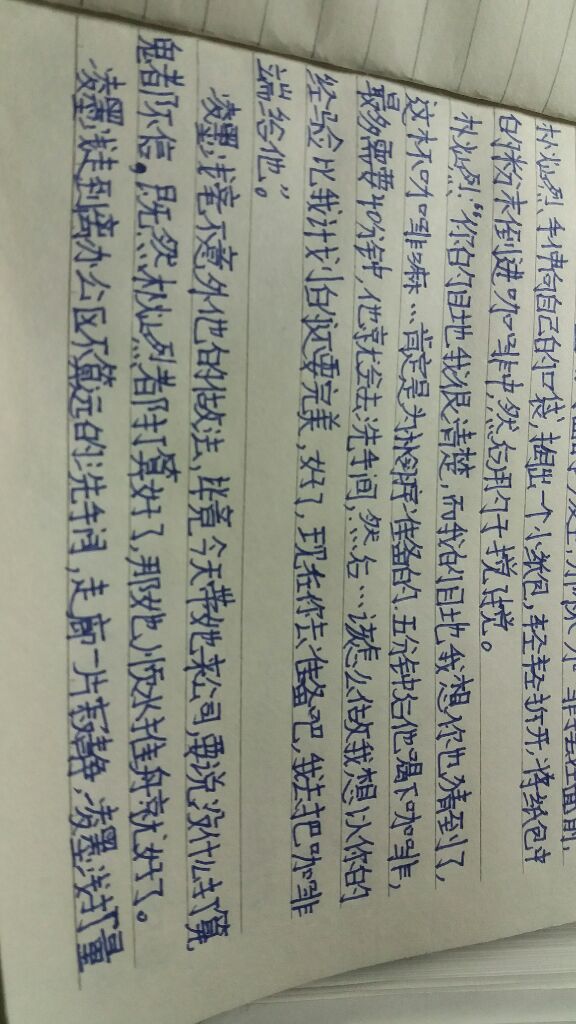 朴灿烈手伸向自己的口袋,掏出一个小纸包,轻轻拆开,将纸包中
的粉末倒进咖啡中,然后用勺子搅拌。
朴灿烈:“你的目地我很清楚,而我的目地我想你也猜到了,
这杯咖啡嘛…肯定是为准备的.五分钟后他喝下咖啡,
最多需要40分钟,他就会去洗手间,然后…该怎么做我想以你的
经验比我计划的还要完美,好了,现在你去准备吧,我去把咖啡
端给他。”
凌墨浅毫不意外他的做法,毕竟今天带她来公司,要说没什么打算
鬼都不信。既然朴灿烈都打算好了,那她顺水推舟就好了。
凌墨浅走到离办公区不算远的洗手间,走廊一片寂静,凌墨浅打量